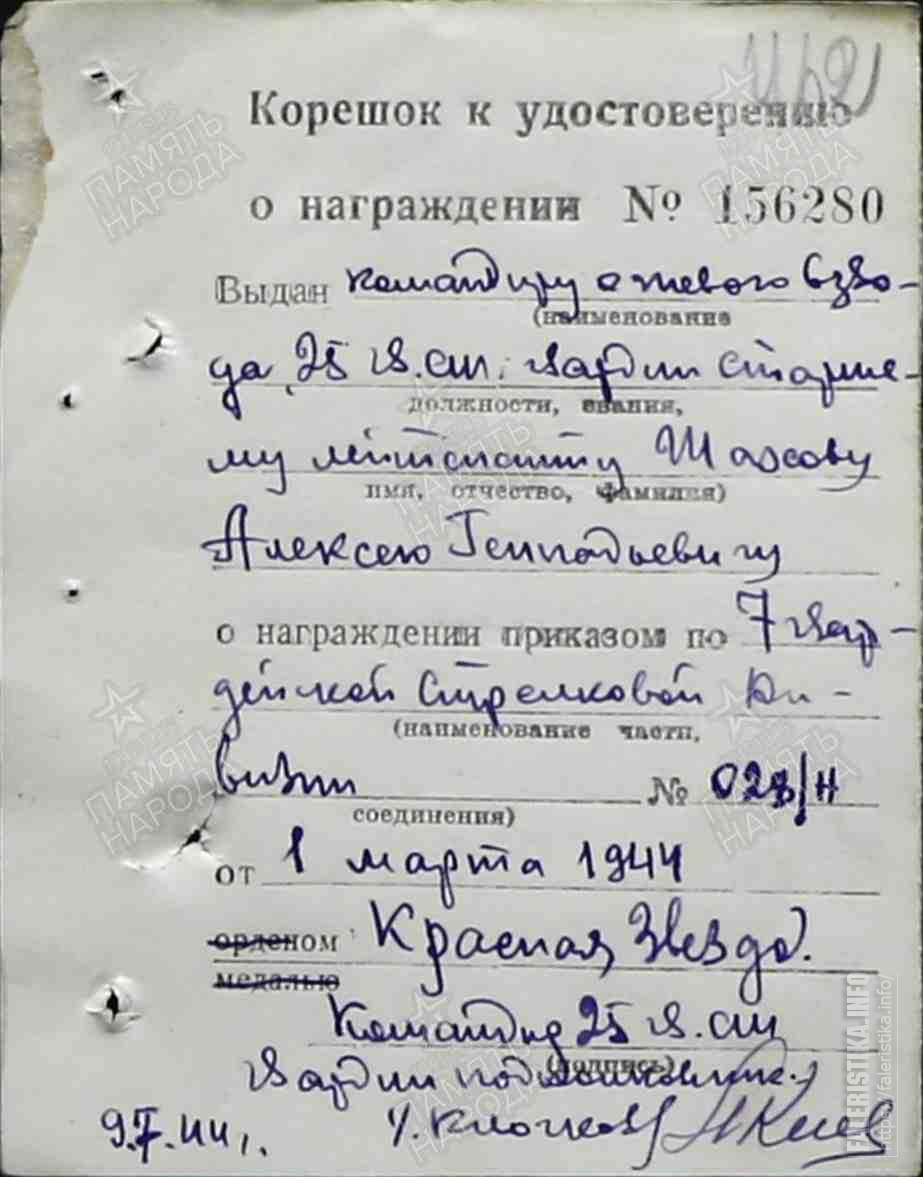 Корешок к удостоверению
о награждении № 156280
Выдан командиру огневого взво-
(наименование
да 25 гв. сп. гвардии старше-
должности, звания,
му лейтенанту Шахову
имя, отчество, фамилия)
Алексею Геннадьевичу
о награждении приказом по 7 гвар-
дейской стрелковой ди-
(наименование части,
визии № 028/н
соединения)
от 1 марта 1944
орденом Красная Звезда.
медалью
Командир 25 гв. сп
(подпись)
гвардии подполковник
9.V.44г.
ПАМЯТЬ НАРОДА
FALERISTIKA.INFO
https://faleristika.info/